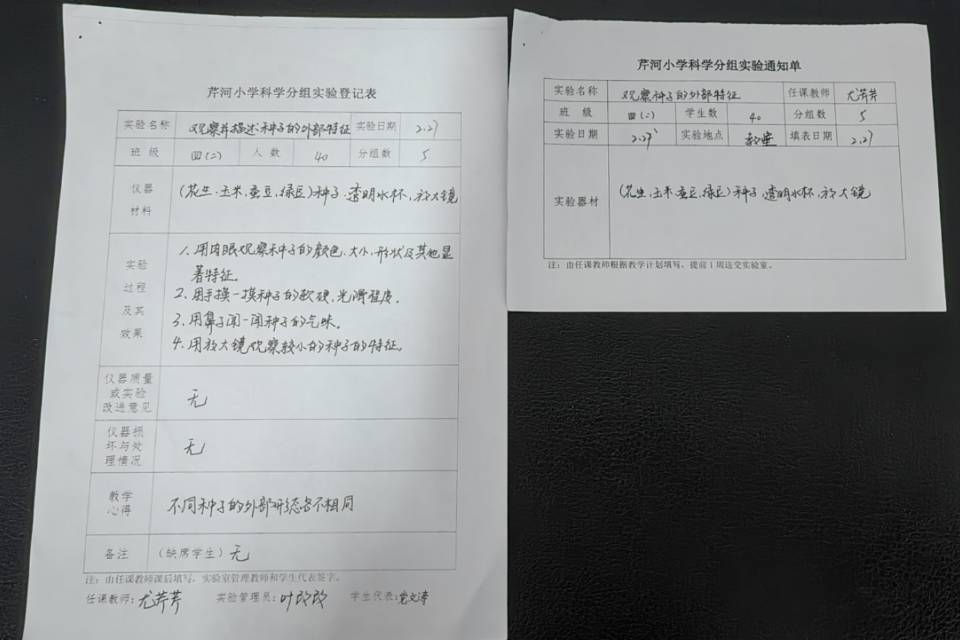 芹河小学科学分组实验登记表
实验名称 观察并描述种子的外部特征 实验日期 2.27
班 级 四(二) 人 数 40 分组数 5
仪器
材料
(花生、玉米、蚕豆、绿豆)种子、透明水杯、放大镜
实验
过程
及其
效果
1、用肉眼观察种子的颜色、大小、形状及其他显
著特征。
2、用手摸一摸种子的软硬、光滑程度。
3、用鼻子闻一闻种子的气味。
4、用放大镜观察较小的种子的特征。
仪器质量
或实验
改进意见
无
仪器损
坏与处
理情况
无
教学
心得
不同种子的外部形态各不相同
备注 (缺席学生) 无
注:由任课教师课后填写,实验室管理教师和学生代表签字。
任课教师:尤芹芹 实验管理员:叶 学生代表:
芹河小学科学分组实验通知单
实验名称 观察种子的外部特征 任课教师 尤芹芹
班 级 四(二) 学生数 40 分组数 5
实验日期 2.27 实验地点 教室 填表日期 2.27
实验器材
(花生、玉米、蚕豆、绿豆)种子、透明水杯、放大镜
注:由任课教师根据教学计划填写,提前1周送交实验室。